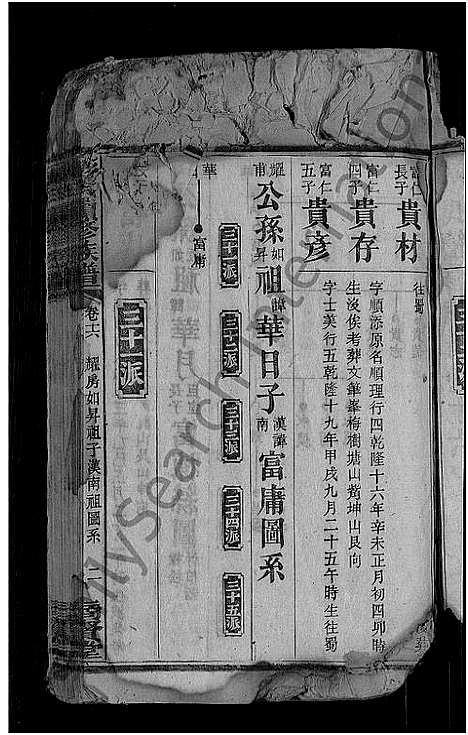 富仁長子 貴材 往蜀
富仁四子 貴存 字順添原名順理行四乾隆十六年辛未正月初四卯時
生沒俟考葬文華峯梅樹塘山觜坤山艮向
富仁五子 貴彥 字士英行五乾隆十九年甲戌九月二十五午時生往蜀
耀甫公孫如昇祖諱華日子漢南諱富庸圖系
三十一派 三十二派 三十三派 三十四派 三十五派
華
富庸
三十一派
族譜 卷十六 耀房如昇祖子漢南祖圖系
三十一派
MySearch International